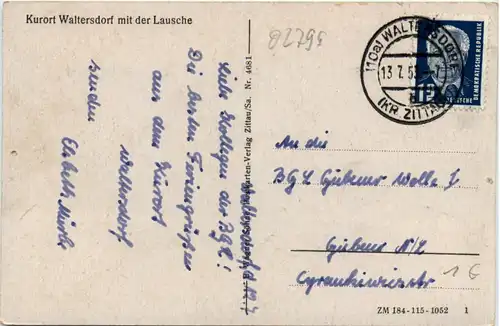 Kurort Waltersdorf mit der Lausche
82795
(10a) WALTERSDORF
13.7.5
(KR. ZITTAU)
DEUTSCHE DEMOKRATISCHE REPUBLIK
12
Liebe Kollegen der BGL!
Die besten Feriengrüße
aus dem Kurort
Waltersdorf
senden
Elisabeth
karten-Verlag Zittau/Sa. Nr. 4681
An die
BGL Gubener Wolle I
Guben N/L
1 €
ZM 184-115-1052 1